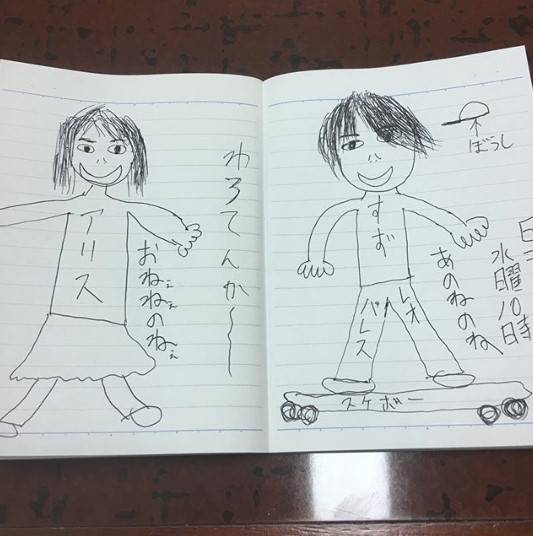 アリス
おねぇねぇのねぇ
わろてんか〜
すず
レオ
パレス
あのねのね
スケボー
ぼうし
水曜10時
日